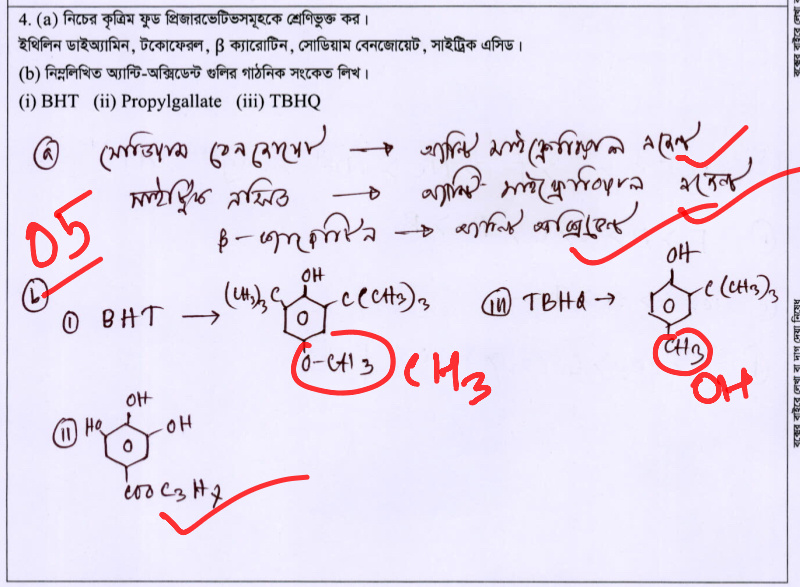 4. (a) নিচের কৃত্রিম ফুড প্রিজারভেটিভসমূহকে শ্রেণিভুক্ত কর।
ইথিলিন ডাইঅ্যামিন, টকোফেরল, β ক্যারোটিন, সোডিয়াম বেনজোয়েট, সাইট্রিক এসিড।
(b) নিম্নলিখিত অ্যান্টি-অক্সিডেন্ট গুলির গাঠনিক সংকেত লিখ।
(i) BHT (ii) Propylgallate (iii) TBHQ
(a) সোডিয়াম বেনজোয়েট → অ্যান্টি মাইক্রোবিয়াল এজেন্ট
সাইট্রিক এসিড → অ্যান্টি-মাইক্রোবিয়াল এজেন্ট
05
β-ক্যারোটিন → অ্যান্টি অক্সিডেন্ট
(b)
(i) BHT → (CH3)3 C OH C(CH3)3
O-CH3 CH3
(iii) TBHQ → OH C(CH3)3
CH3
OH
(ii) HO OH OH
COO C3H7